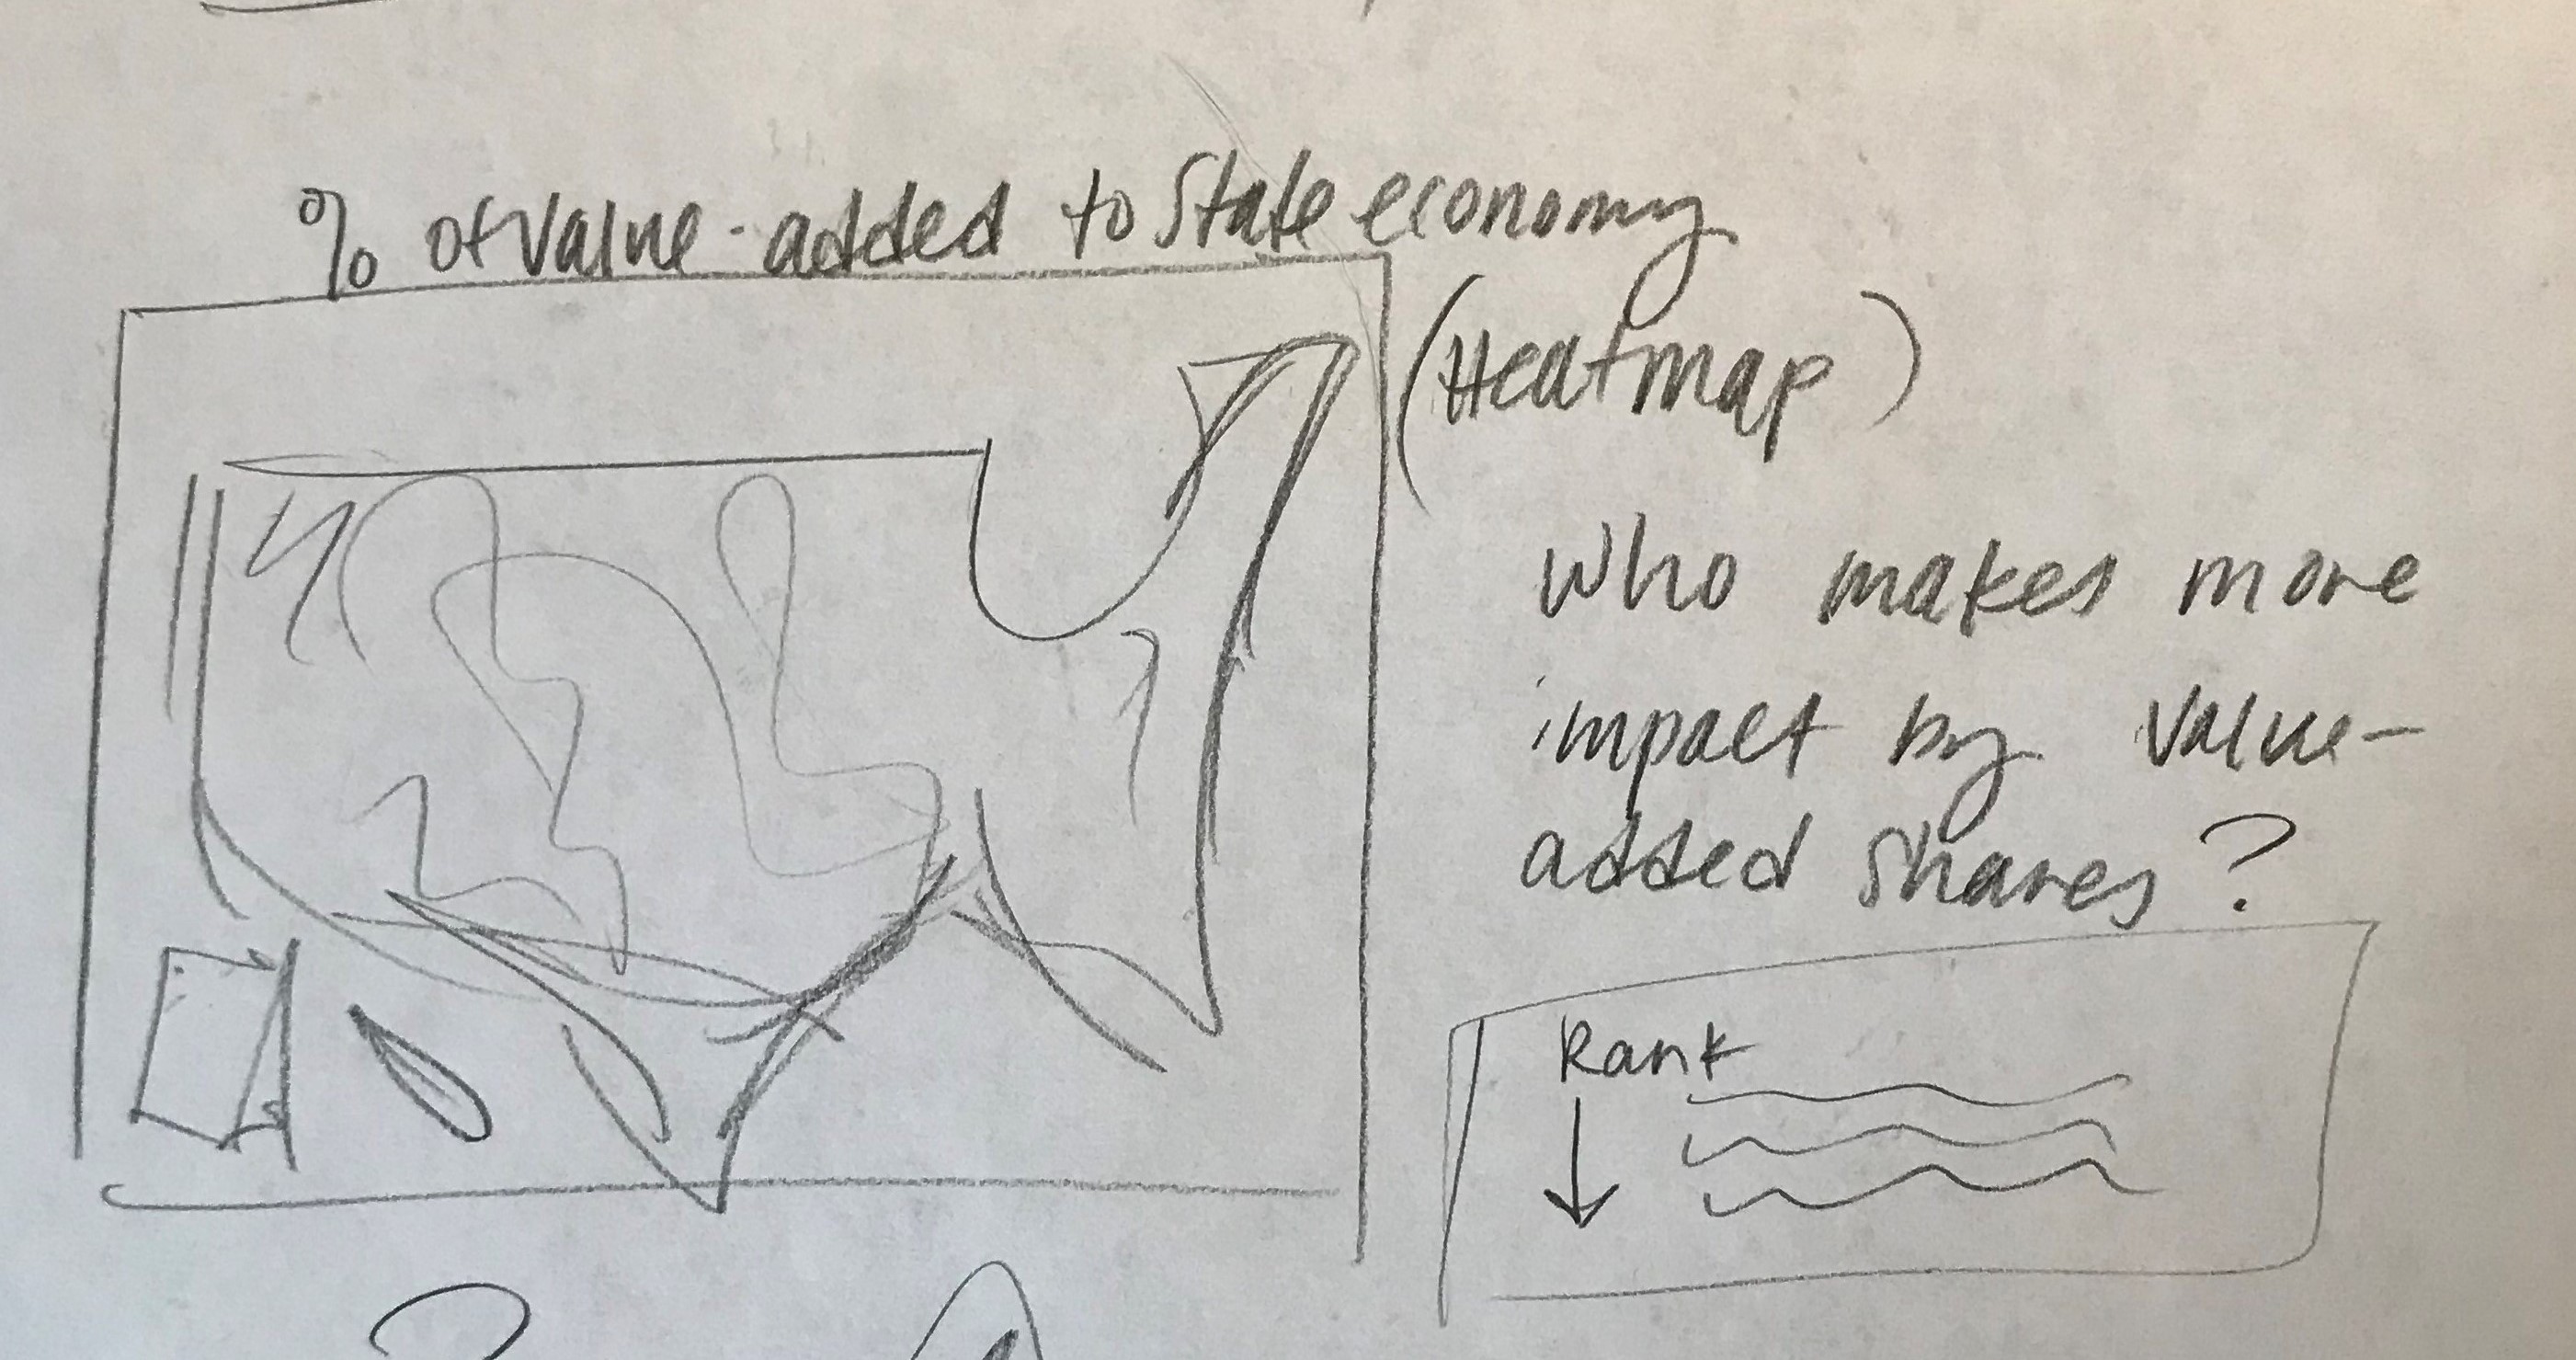 % of Value-added to State economy
(Heatmap)
Who makes more
impact by Value-
added shares?
Rank